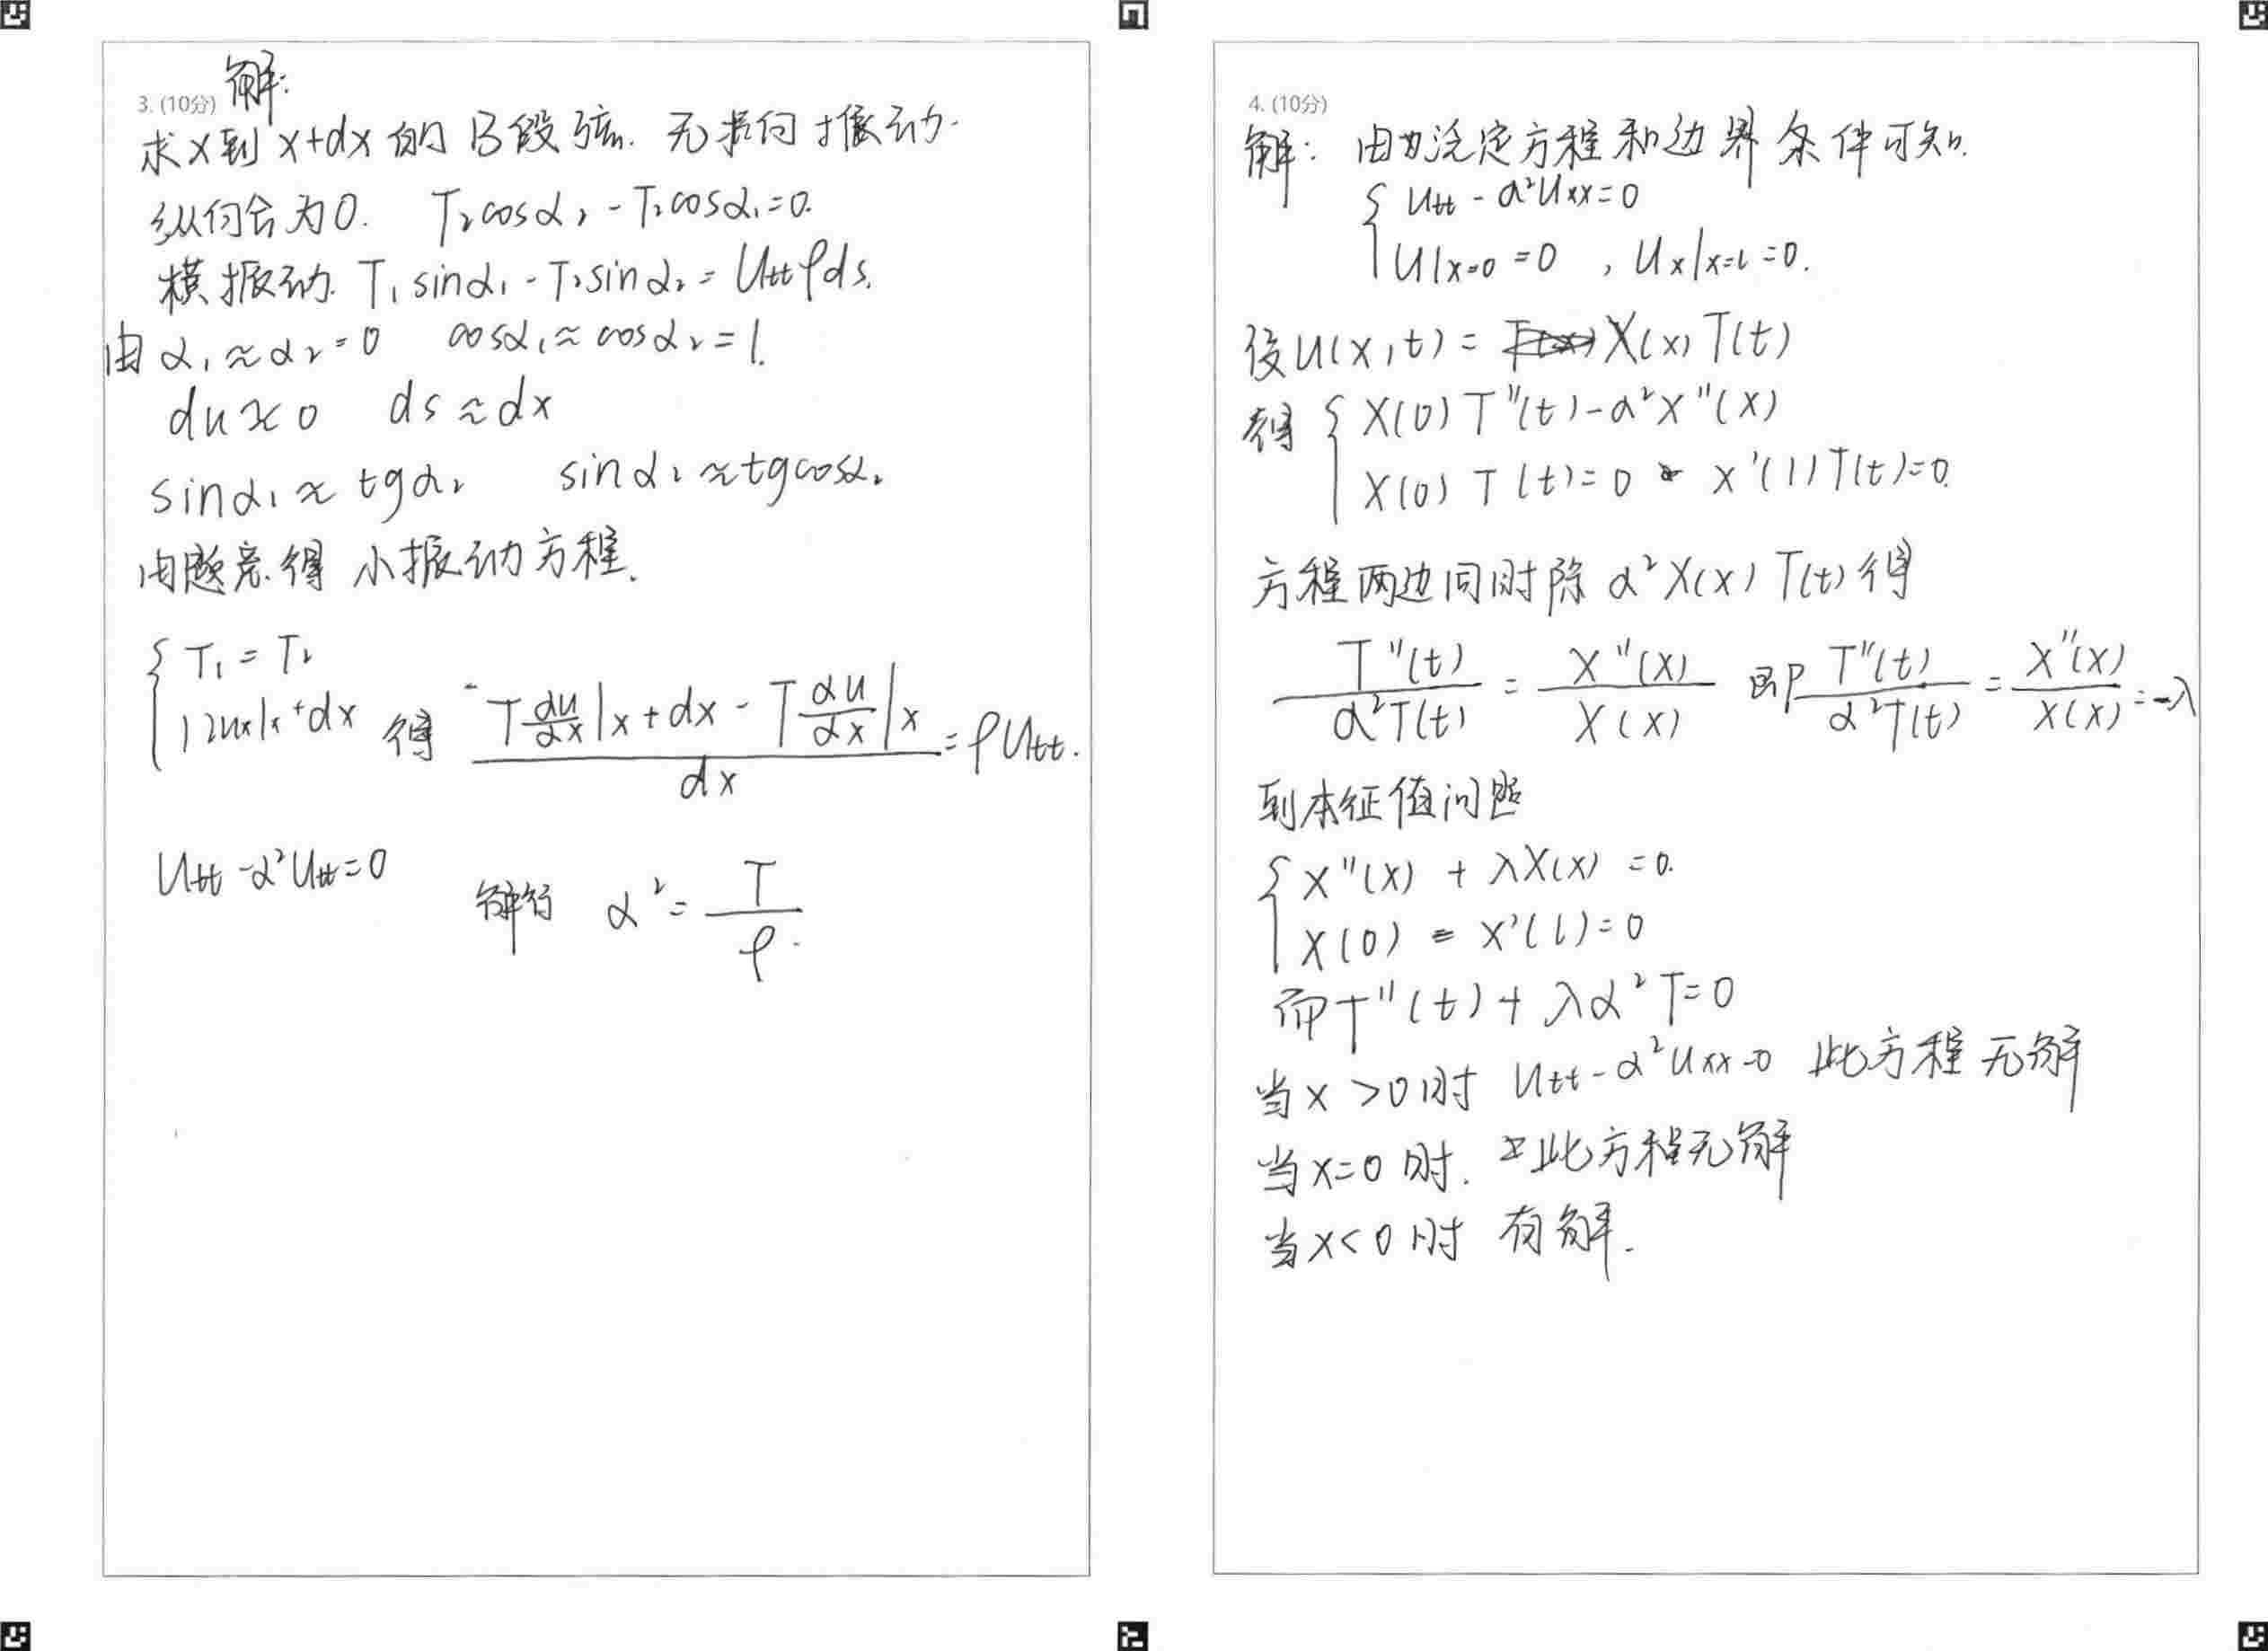 3. (10分) 解:
求x到x+dx的B段弦. 无振向振动.
纵向合为0. T₂cosα₂ - T₂cosα₁=0.
横振动. T₁sinα₁ - T₂sinα₂ = Uttρds.
由α₁≈α₂=0 cosα₁≈cosα₂=1.
du≈0 ds≈dx
sinα₁≈tgα₂ sinα₂≈tgcosα₂
由题意得 小振动方程.
{ T₁=T₂
得 (T du/dx|x+dx - T du/dx|x) / dx = ρUtt.
Utt-α²Utt=0 解得 α²= T/ρ.
4. (10分)
解: 由泛定方程和边界条件可知.
{ Utt - α²Uxx=0
U|x=0 =0 , Ux|x=l=0.
设u(x,t)= X(x)T(t)
得 { X(0)T''(t)-α²X''(X)
X(0)T(t)=0 X'(l)T(t)=0.
方程两边同时除α²X(x)T(t)得
T''(t)/α²T(t) = X''(X)/X(X) 即 T''(t)/α²T(t) = X''(x)/X(x) =-λ
到本征值问题
{ X''(X) + λX(X) =0.
X(0) = X'(l)=0
而T''(t)+λα²T=0
当x>0时 Utt-α²Uxx=0 此方程无解
当x=0时. 此方程无解
当x<0时 有解.